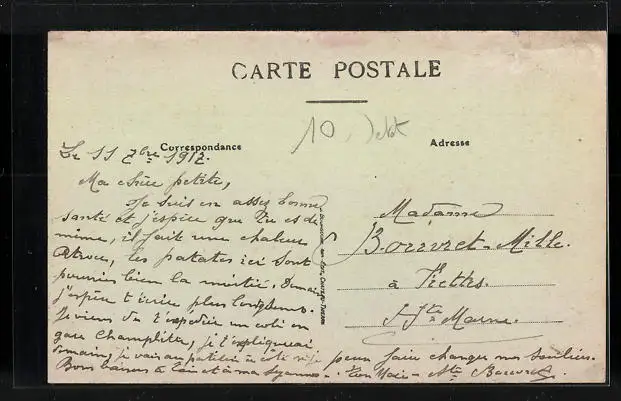 CARTE POSTALE
10
Correspondance
Adresse
Le 11 7bre 1917.
Ma chère petite,
Je suis en assez bonne
santé et j'espère que tu es de
même, il fait une chaleur
atroce, les patates ici sont
pourries bien la moitié. Demain
j'espère t'écrire plus longtemps.
Je viens de t'expédier un coli en
gare Champlitte, je t'expliquerai
demain, je vais au patelin à côté pour faire changer mes souliers.
Bons baisers à toi et à ma
Madame
Bourret-Mille.
à Piettes.
Hte Marne.